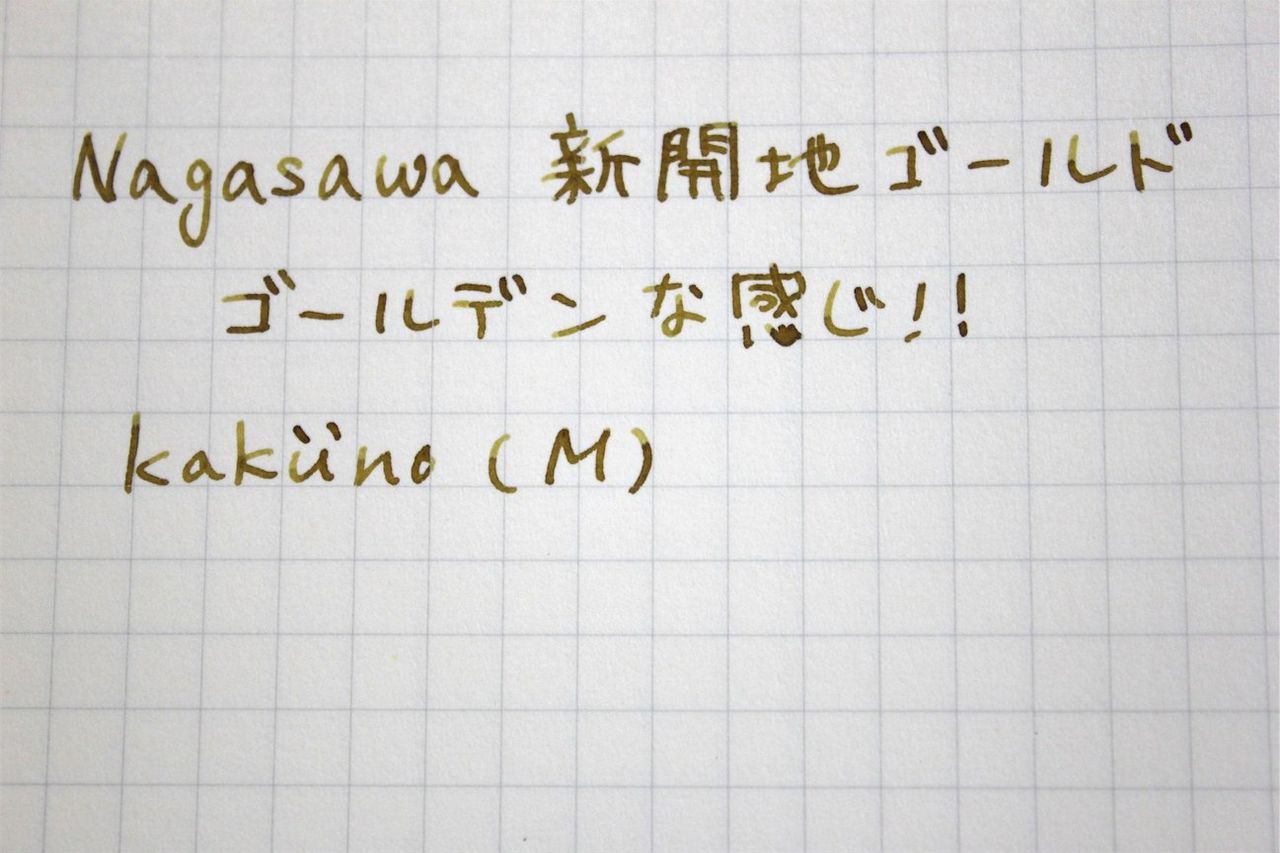 Nagasawa 新開地ゴールド
ゴールデンな感じ!!
kaküno (M)